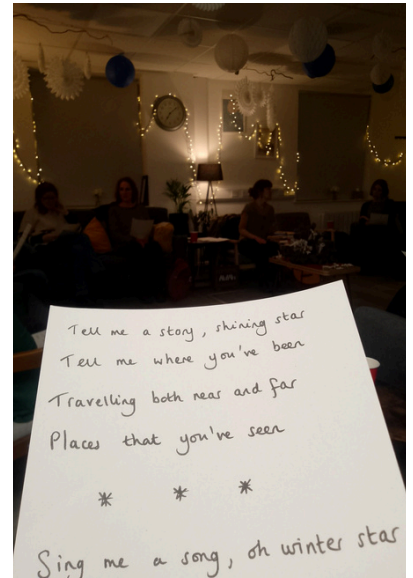 Tell me a story, shining star
Tell me where you've been
Travelling both near and far
Places that you've seen
* * *
Sing me a song, oh winter star